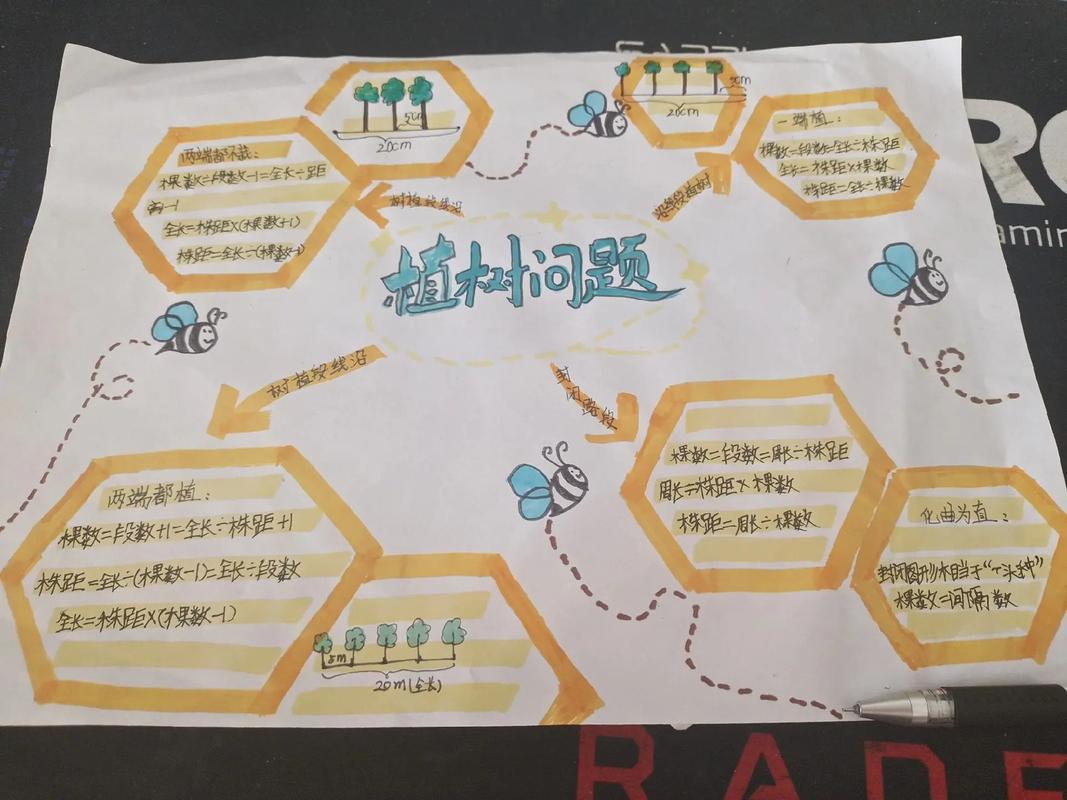 植树问题
5cm
20cm
两端都不栽：
棵数=段数-1=全长÷距
离-1
全长=株距×(棵数+1)
株距=全长÷(棵数-1)
树植段线沿
5cm
20cm
一端植：
棵数=段数=全长÷株距
全长=株距×棵数
株距=全长÷棵数
树植段线沿
两端都植：
棵数=段数+1=全长÷株距+1
株距=全长÷(棵数-1)=全长÷段数
全长=株距×(棵数-1)
5m
20m(全长)
封闭路段
棵数=段数=周长÷株距
周长=株距×棵数
株距=周长÷棵数
化曲为直：
封闭图形相当于“一头种”
棵数=间隔数
RADE